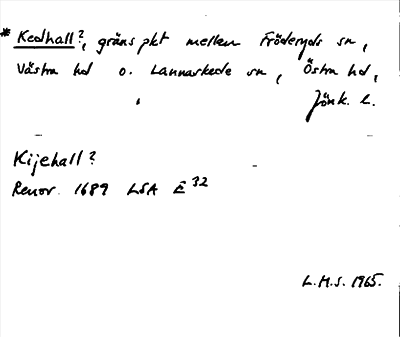 * Kedhall?, gränspkt mellan Fröderyds sn,
Västra hd o. Lannaskede sn, Östra hd,
Jönk. l.
Kijehall?
Renov. 1689 LSA E 32
L.H.S. 1965.